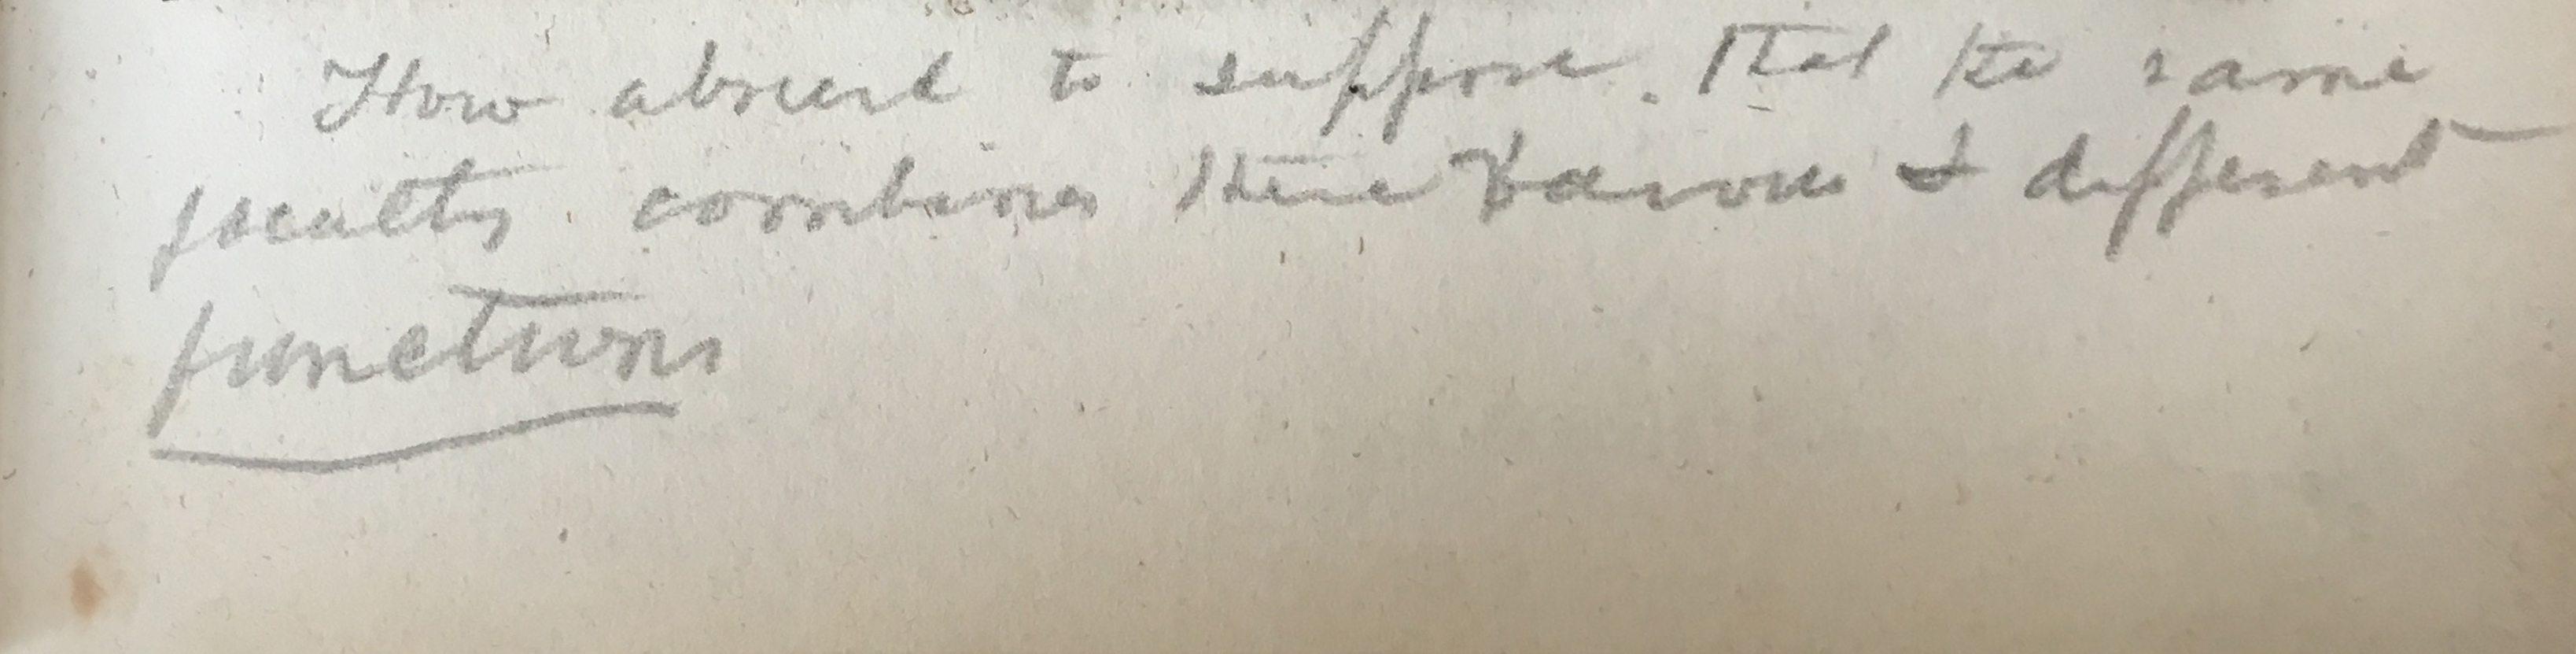 How absurd to suppose that the same
faculty combines these various & different
functions